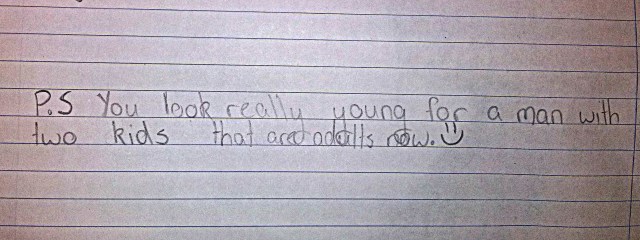 P.S You look really young for a man with
two kids that are adults now.